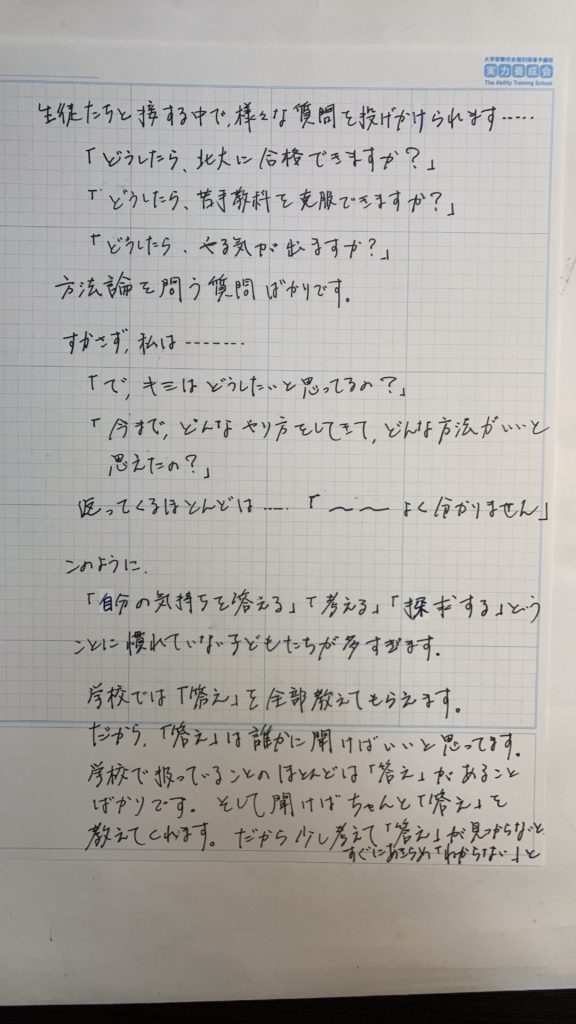 大学受験完全個別指導予備校
実力養成会
The Ability Training School
生徒たちと接する中で、様々な質問を投げかけられます……
「どうしたら、北大に合格できますか？」
「どうしたら、苦手教科を克服できますか？」
「どうしたら、やる気が出ますか？」
方法論を問う質問ばかりです。
すかさず、私は………
「で、キミはどうしたいと思ってるの？」
「今まで、どんなやり方をしてきて、どんな方法がいいと
思えたの？」
返ってくるほとんどは……「〜〜よく分かりません」
このように、
「自分の気持ちを答える」「考える」「探求する」という
ことに慣れていない子どもたちが多すぎます。
学校では「答え」を全部教えてもらえます。
だから、「答え」は誰かに聞けばいいと思ってます。
学校で扱っていることのほとんどは「答え」があること
ばかりです。そして聞けばちゃんと「答え」を
教えてくれます。だから少し考えて「答え」が見つからないと、
すぐにあきらめ「わからない」と